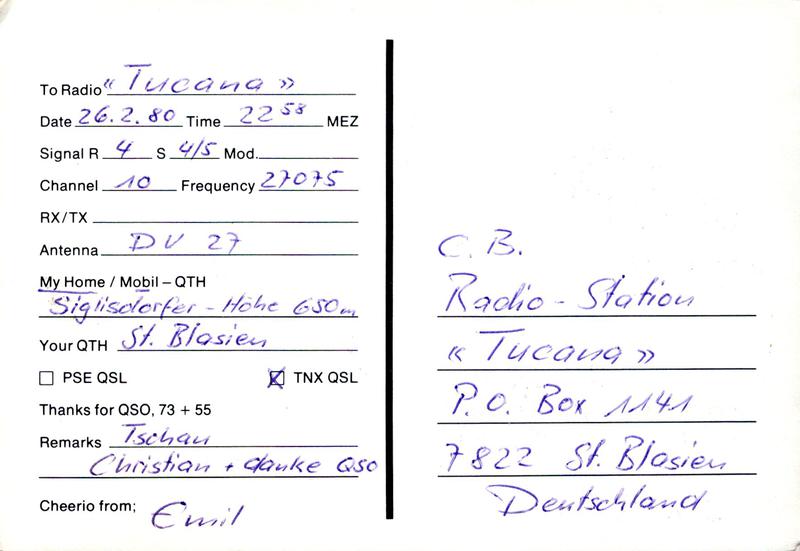 To Radio « Tucana »
Date 26.2.80 Time 22 58 MEZ
Signal R 4 S 4/5 Mod.
Channel 10 Frequency 27075
RX/TX
Antenna DV 27
My Home / Mobil – QTH
Siglisdorfer - Höhe 650m
Your QTH St. Blasien
PSE QSL TNX QSL
Thanks for QSO, 73 + 55
Remarks Tschau
Christian + danke QSO
Cheerio from; Emil
C. B.
Radio - Station
« Tucana »
P.O. Box 1141
7822 St. Blasien
Deutschland